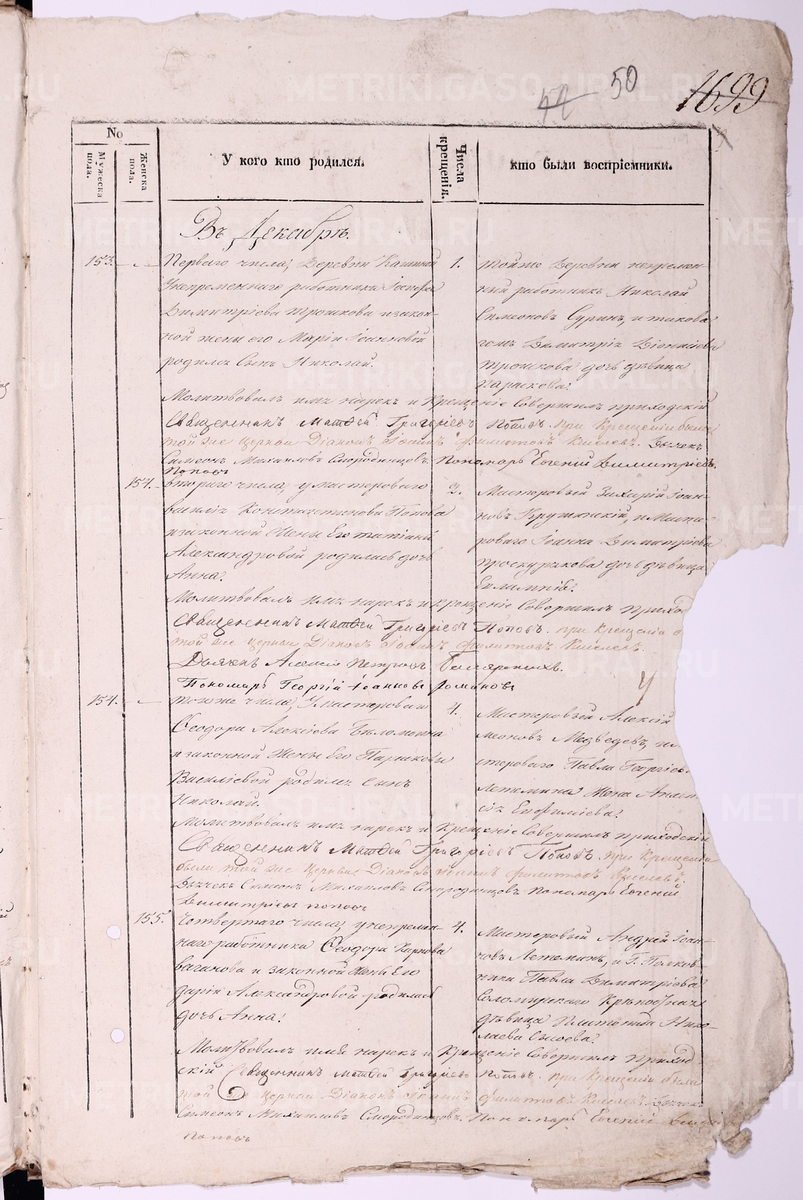 50
1699
No
Мужеска пола.
Женска пола.
У кого кто родился.
Числа крещенія.
кто были воспріемники.
Въ Декабрѣ.
153.
Перваго числа, Деревни
непременнаго работника Іосифа
Димитріева Трошкова и закон-
ной жены его Маріи Іоанновой
родился Сынъ Николай.
1.
тойже Деревни непремен-
ный работникъ Николай
Симеоновъ
Димитрія
Трошкова дочь девица
Молитвовалъ имя нарекъ и Крещеніе Совершилъ приходскій
Священникъ Матѳей Григоріевъ Поповъ. при Крещеніи были
той же церкви Діаконъ Іоаннъ Филитовъ Киселевъ. Дьячекъ
Симеонъ Михаиловъ Смородинцовъ. Пономарь Евгений Димитріевъ.
Поповъ
154.
втораго числа, у мастероваго
Константинова Попова
и законной Жены Его Татіаны
Александровой родилась дочь
Анна.
2.
Мастеровый Захарій Іоан-
новъ и Масте-
роваго Іоанна Димитріева
Проскурякова дочь девица
Молитвовалъ имя нарекъ и Крещеніе Совершилъ приход
Священникъ Матѳей Григоріевъ Поповъ. при Крещеніи
той же церкви Діаконъ Іоаннъ Филитовъ Киселевъ.
Дьякъ Алексій Петровъ
Пономарь Георгій Іоанновъ Романовъ
154.
числа, У мастероваго
Ѳеодора Алексіева
и законной Жены Его Параскевы
Василіевой родился Сынъ
Николай.
4.
Мастеровый Алексій
Медведевъ,
тероваго Павла
Летемина Жена
Евфиміева.
Молитвовалъ имя нарекъ и Крещеніе Совершилъ приходскій
Священникъ Матѳей Григоріевъ Поповъ. при Крещеніи
были той же Церкви Діаконъ Іоаннъ Филитовъ Киселевъ.
Дьячекъ Симеонъ Михаиловъ Смородинцовъ Пономарь Евгений
Димитріевъ Поповъ
155.
Четвертаго числа, у непремен-
наго работника Ѳеодора Карпова
Ваганова и законной Жены Его
Даріи Александровой родилась
дочь Анна.
4.
Мастеровый Андрей Іоан-
новъ Летеминъ, и Г. Полков-
ника Павла Димитріева
Соломирскаго
девица Нико-
лаева
Молитвовалъ имя нарекъ и Крещеніе Совершилъ Приход-
скій Священникъ Матѳей Григоріевъ Поповъ. при Крещеніи были
той же церкви Діаконъ Іоаннъ Филитовъ Киселевъ. Дьячекъ
Симеонъ Михаиловъ Смородинцовъ. Пономарь Евгений
Поповъ
METRIKI.GASO-URAL.RU